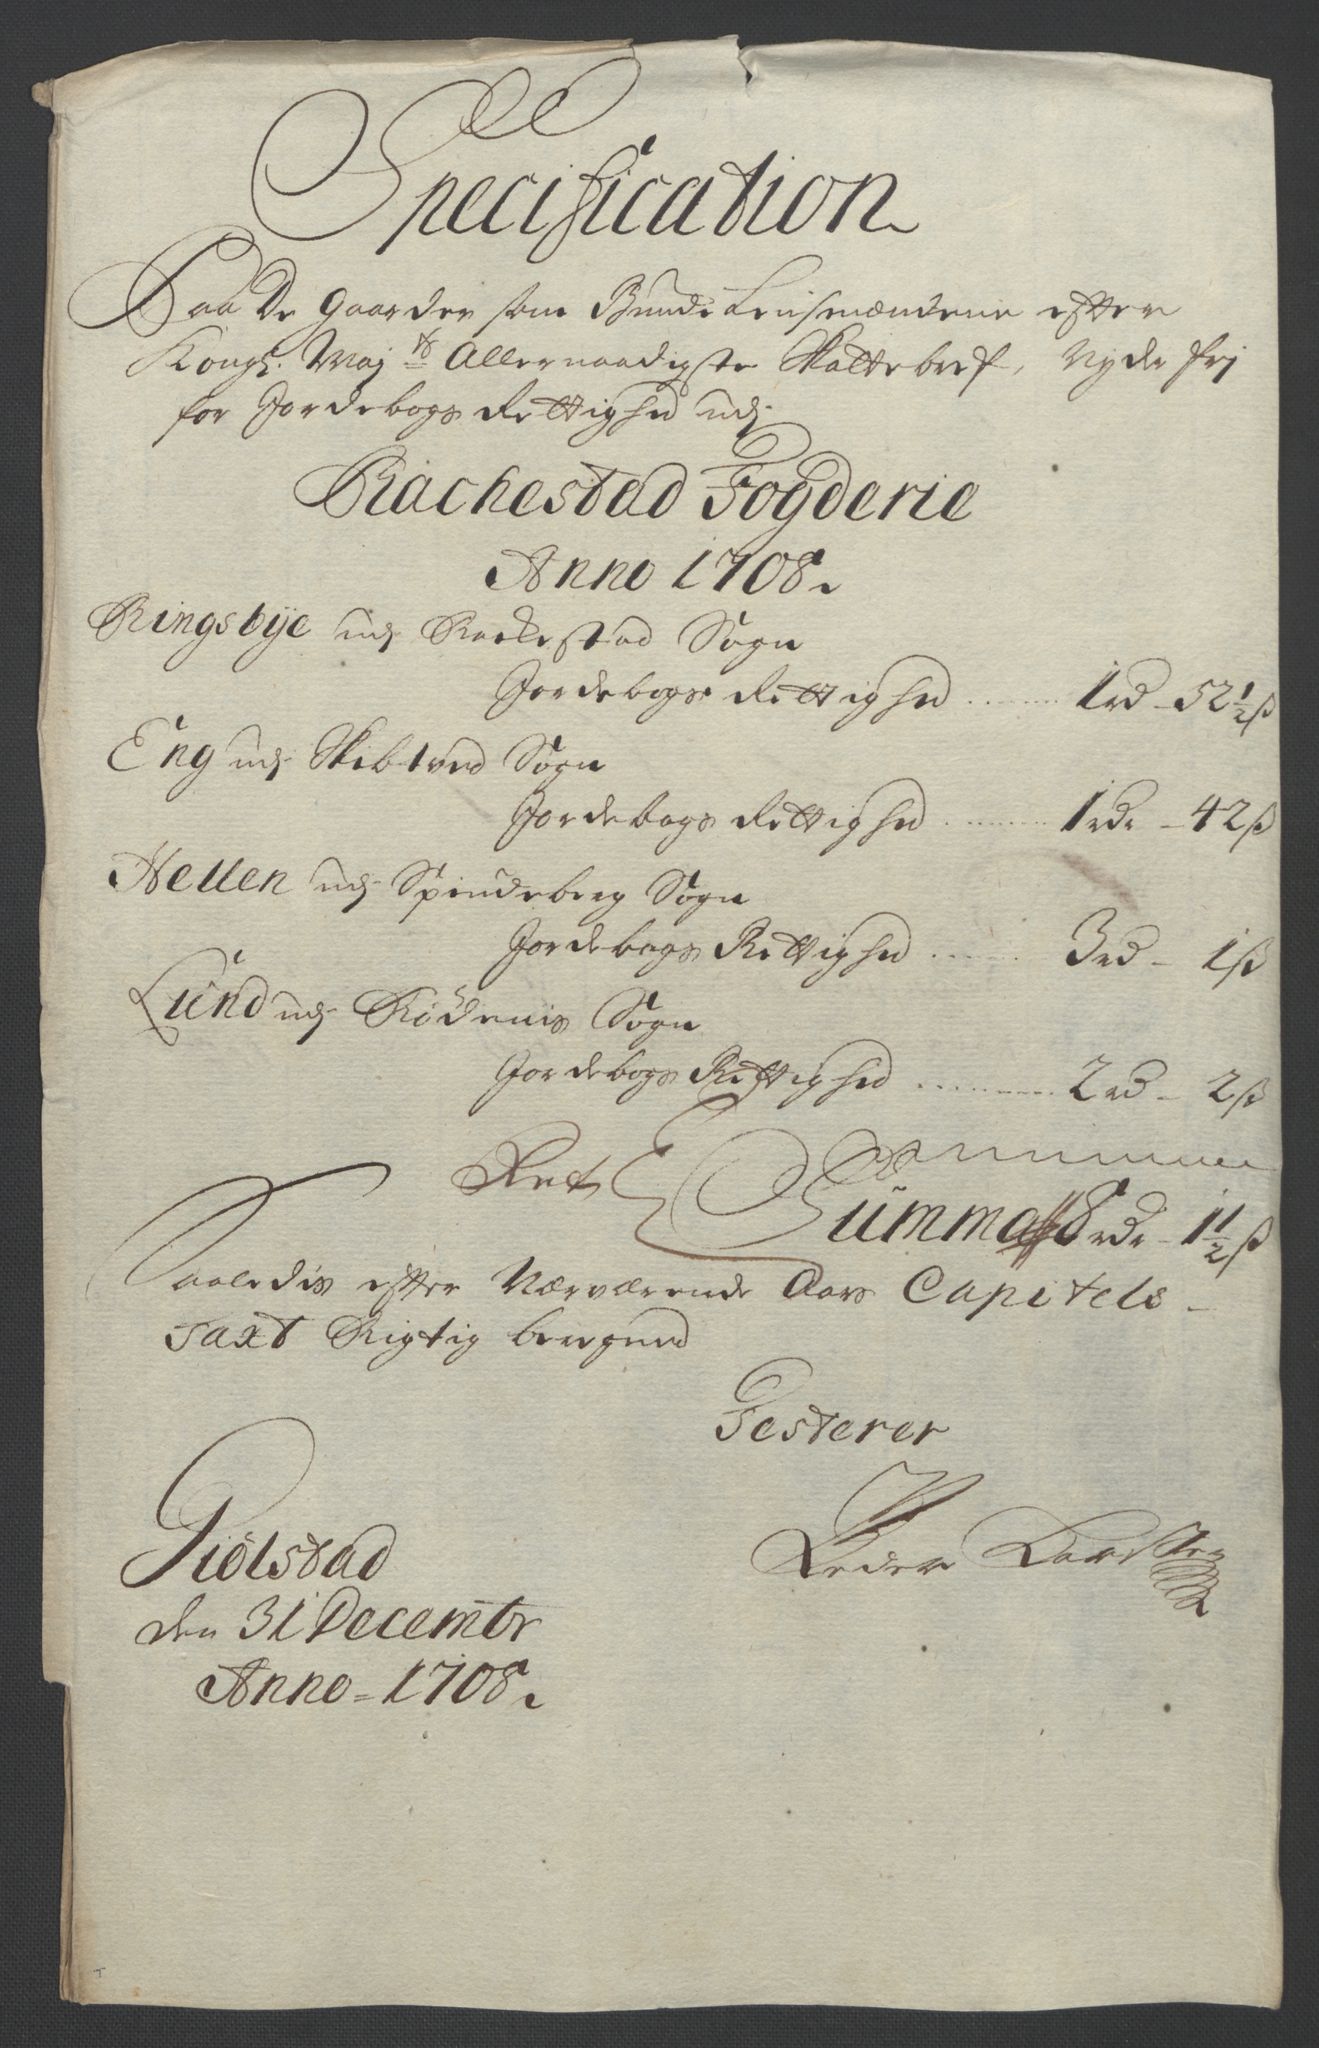 Specification
Paa De Gaarder som Bunde Lensmændene efter
Kongl. Maj.ts Allernaadigste Skattebref, Nyder frj
for Jordebogs Rettighed udj
Rachestad Fogderie
Anno 1708.
Ringsbye udj Rackestad Sogn
Jordebogs Rettighed ...... 1 rd – 52 1/2 ß
Eng udj Skibtved Sogn
Jordebogs Rettighed ...... 1 rdr – 42 ß
Hellen udj Spindeberg Sogn
Jordebogs Rettighed ...... 3 rd – 1 ß
Lund udj Rødenis Sogn
Jordebogs Rettighed ...... 2 rd – 2 ß
Ret Summa 8 rdr – 1 1/2 ß
Saaledis efter Nærværende Aars Capitels
Taxt Rigtig beregned
Testerer
Peder Karsten
Giølstad
den 31 Decembr
Anno = 1708.